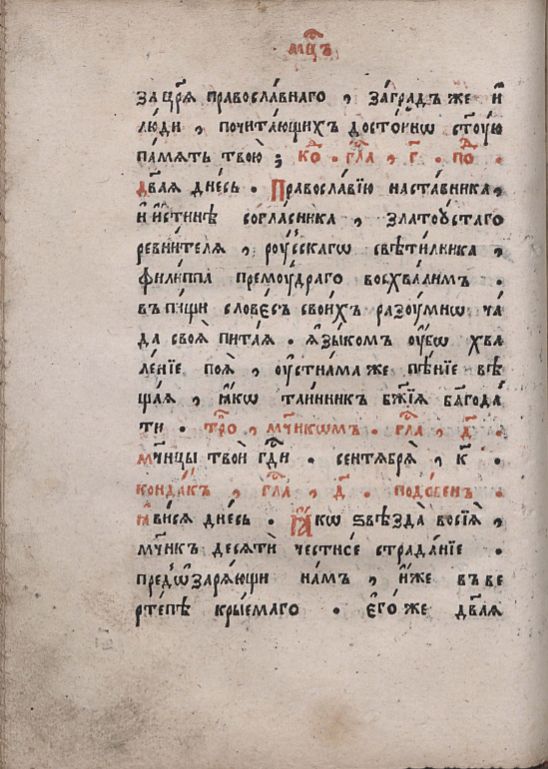 мц҃ъ
за цр҃я православнаго , за градъ же и҆
люди , почитающихъ достойнѡ ст҃ꙋю
память твою ; ко҃ . гла҃ , г҃ . по҃д .
два҃я днесь . Православїю наставника ,
и҆ и҆стинѣ согласника , златоустаго
ревнителя , роусскагѡ свѣтилника ,
филиппа премоудраго восхвалимъ .
въ пищи словесъ своихъ разоумнѡ ча
да своя̀ питая . ꙗ҆зыкомъ оу҆бѡ хва
ленїе поя̀ , оу҆стнама же пѣнїе вѣ
щая , ꙗ҆кѡ таинник бж҃їя благ҃ода
ти . тро҃ , мч҃никѡмъ . гла҃ , д҃ .
мч҃ницы твои гд҇и . сентября̀ , к҃ .
кондакъ , гла҃ , д҃ . подобенъ .
ꙗ҆вися днесь . Ꙗ҆кѡ ѕвѣзда̀ восїя̀ ,
мч҃ник десяти̑ честнѡе страданїе .
предѡзаряющи намъ , и҆же въ ве
ртепѣ крыемаго . є҆го же два҃я